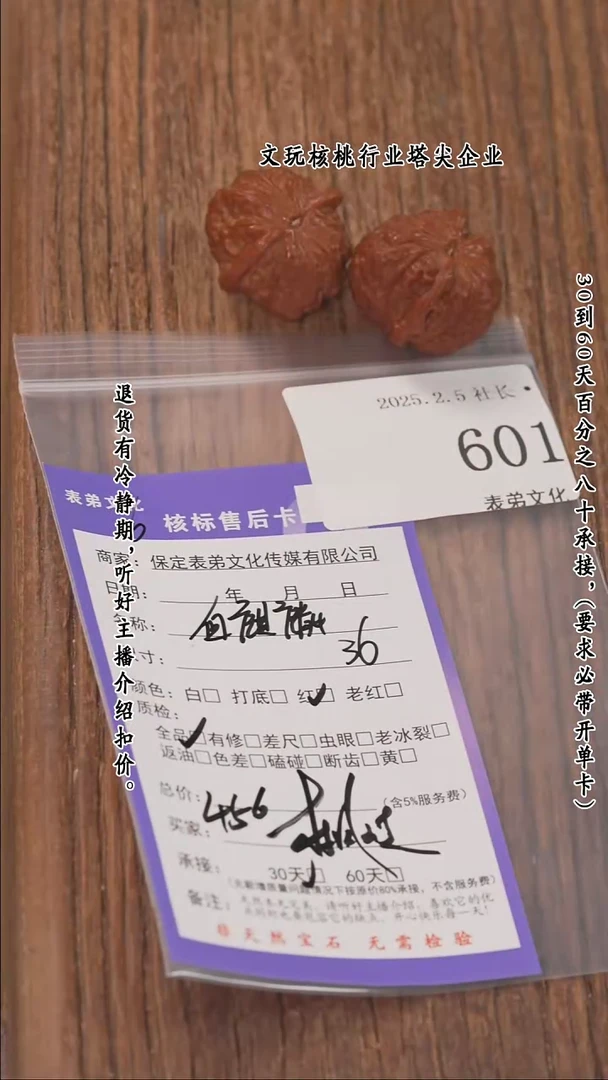 文玩核桃行业塔尖企业
30到60天百分之八十承接,(要求必带开单卡)
退货有冷静期,听好主播介绍扣价。
2025.2.5 社长
601
表弟文化
表弟文化
核标售后卡
商家: 保定表弟文化传媒有限公司
日期: 年 月 日
称:
寸: 36
颜色: 白□ 打底□ 红☑ 老红□
质检:
全品☑有修□差尺□虫眼□老冰裂□
返油□色差□磕碰□断齿□黄□
总价: 456 (含5%服务费)
买家:
承接: 30天□ 60天□
质量问题情况下按原价80%承接,不含服务费)
备注: 天然本无完美,请听好主播介绍,喜欢它的优
点同时也要包容它的缺点,开心快乐每一天!
非天然宝石 无需检验